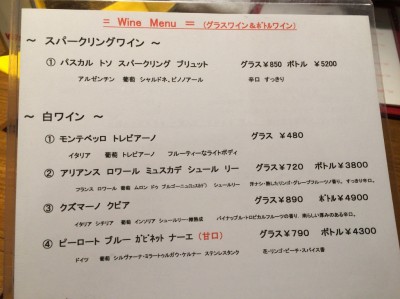 = Wine Menu = (グラスワイン&ボトルワイン)
~ スパークリングワイン ~
① パスカル トソ スパークリング ブリュット グラス¥850 ボトル ¥5200
アルゼンチン 葡萄 シャルドネ、ピノノアール 辛口 すっきり
~ 白ワイン ~
① モンテベッロ トレビアーノ グラス ¥480
イタリア 葡萄 トレビアーノ フルーティーなライトボディ
② アリアンス ロワール ミュスカデ シュール リー グラス¥720 ボトル¥3800
フランス ロワール 葡萄 ムロン ドゥ ブルゴーニュ シュールリー 洋ナシ・熟したリンゴ・グレープフルーツの香り。すっきり辛口。
③ クズマーノ クビア グラス¥890 ボトル¥4900
イタリア シチリア 葡萄 インソリア シュールリー樽熟成 パイナップル・トロピカルフルーツの香り 素晴らしい厚みのある辛口。
④ ピーロート ブルー カビネット ナーエ (甘口) グラス¥790 ボトル¥4300
ドイツ 葡萄 シルヴァーナ・ミラートゥルガウ・ケルナー ステンレスタンク 花・リンゴ・ピーチ・スパイス香